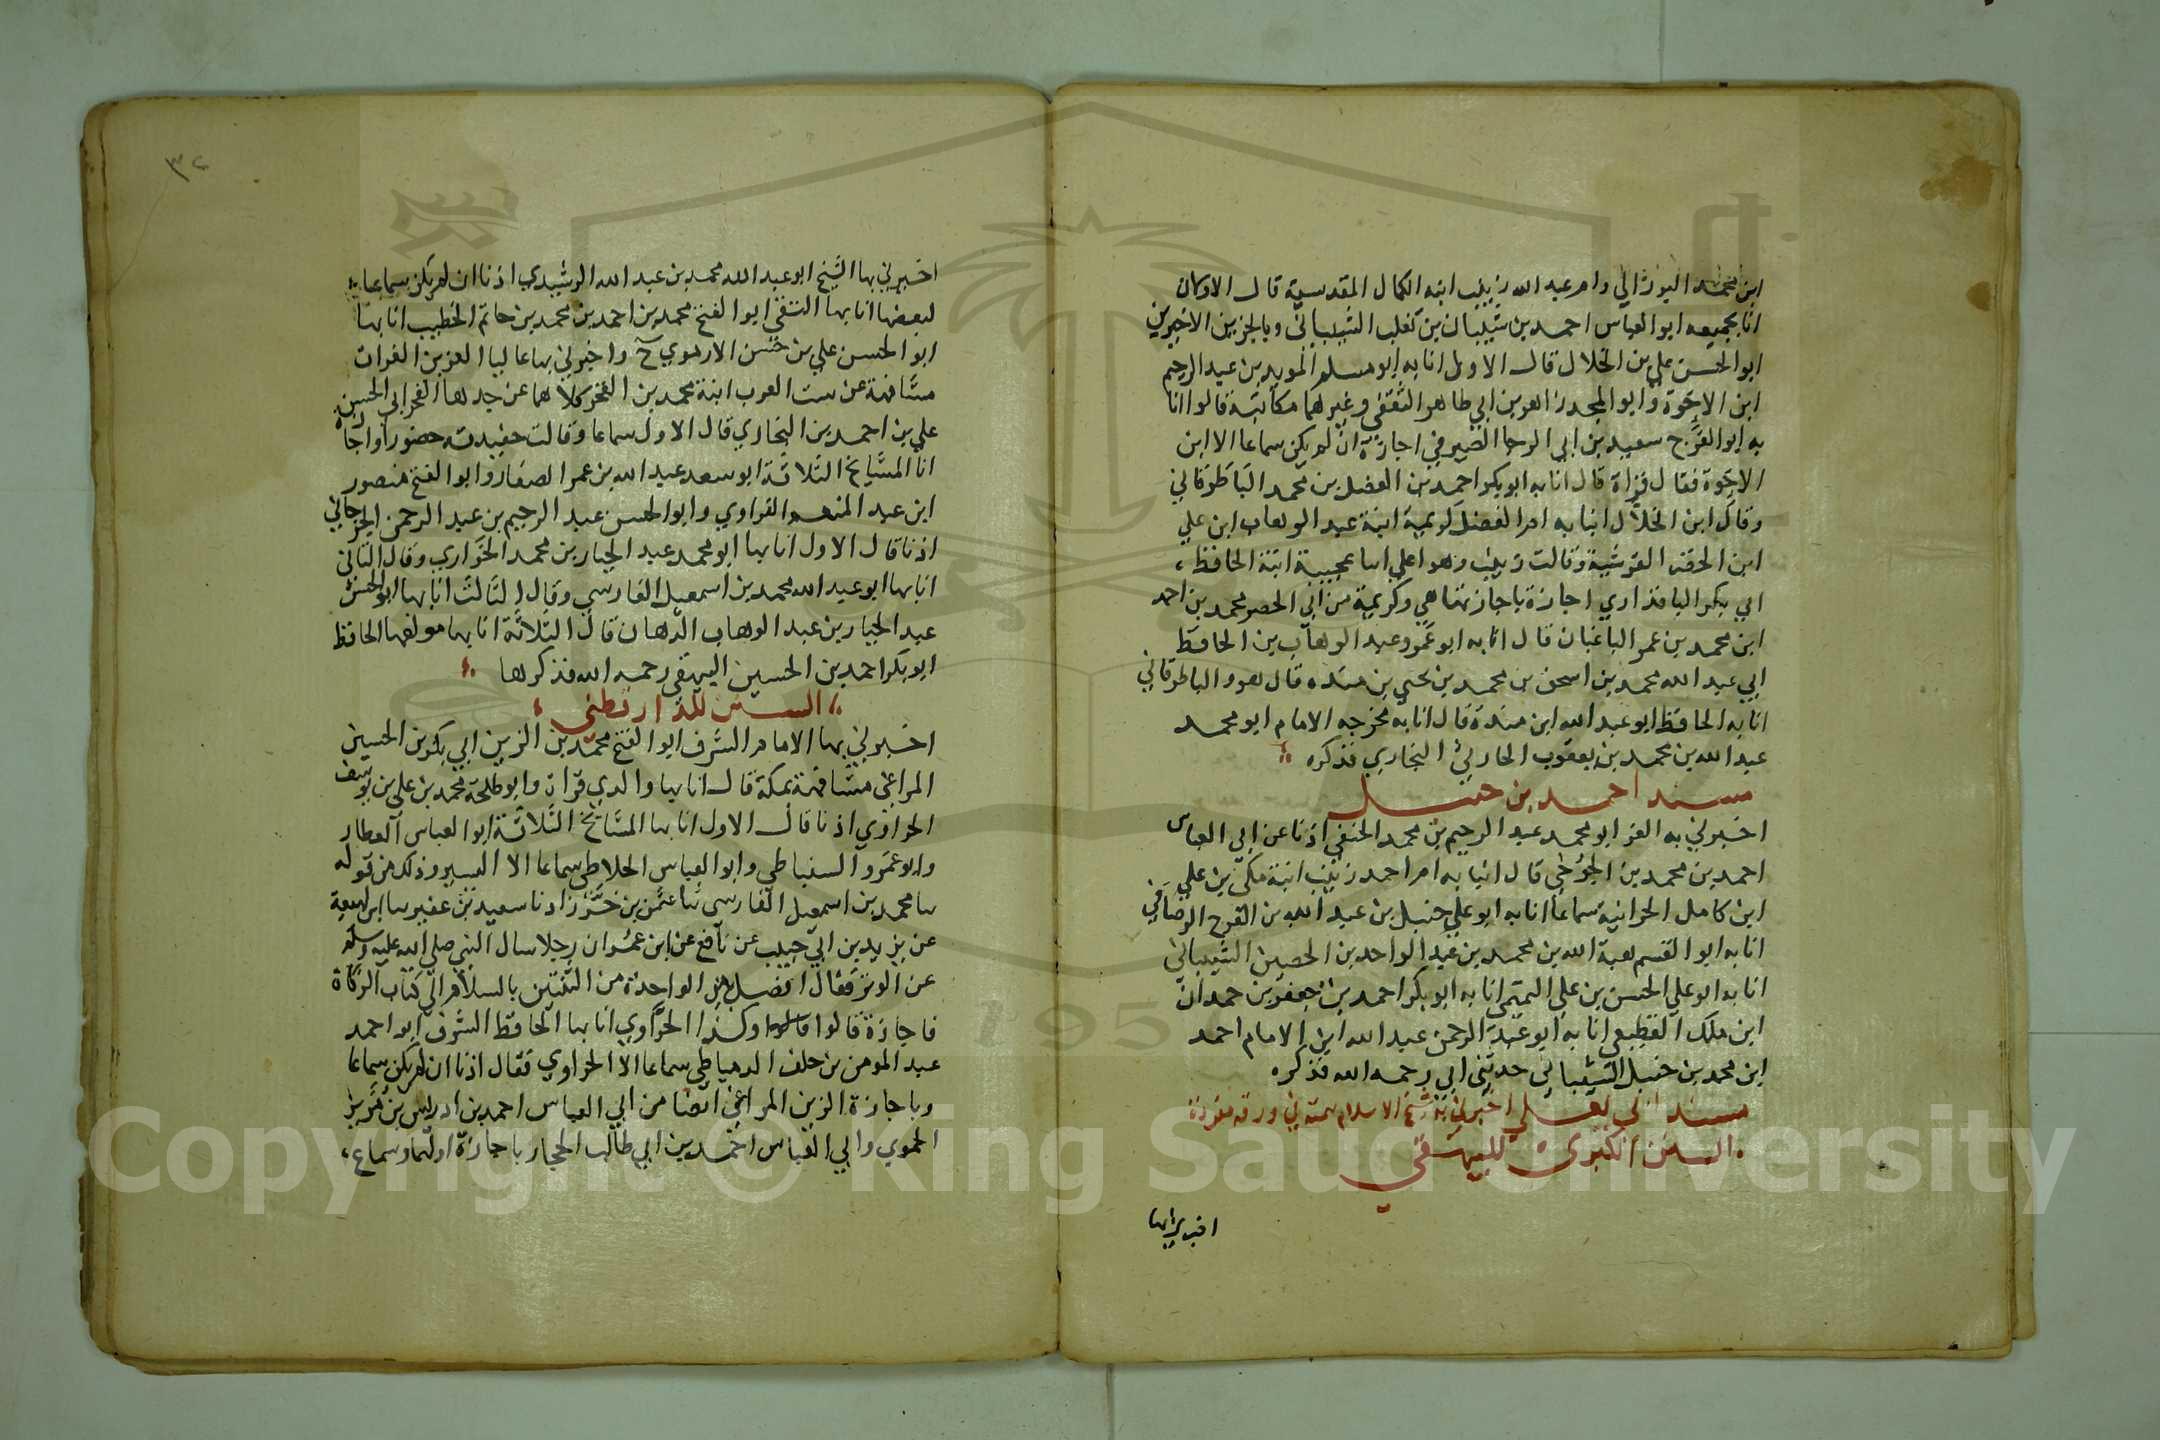 ابن محمد البوزالي وام عبد الله زينب ابنه الكمال المقدسية قال الاولان
انا بجميعه ابو العباس احمد بن شيبان بن تغلب الشيباني وبالجزين الاخيرين
ابو الحسن علي بن الخلال قال الاول انا به ابو مسلم المويد بن عبد الرحيم
ابن الاخوة وابو المجد زاهر بن ابي طاهر الثقفي وغيرهما مكاتبة قالوا انا
به ابو الفرج سعيد بن ابي الرجا الصيرفي اجازة ان لم يكن سماعا الا ابن
الاخوة فقال قراة قال انا به ابو بكر احمد بن الفضل بن محمد الباطرقاني
وقال ابن الخلال انبا به ام الفضل كريمة ابنة عبد الوهاب ابن علي
ابن القرشية وقالت زينب وهو اعلي اسا عجيبة ابنة الحافظ
ابي بكر الباقداري اجازة باجازتها هي وكريمة من ابي الخصر محمد بن احمد
ابن محمد بن عمر الباغبان قال انا به ابو عمرو عبد الوهاب بن الحافظ
ابي عبد الله محمد بن اسحق بن محمد بن يحيي بن منده قال هو والباطرقاني
انا به الحافظ ابو عبد الله ابن مندة قال انا به مخرجه الامام ابو محمد
عبد الله بن محمد بن يعقوب الحارثي البخاري فذكره
مسند احمد بن حنبل
اخبرني به العز ابو محمد عبد الرحيم بن محمد الحنفي اذنا عن ابي العباس
احمد بن محمد بن الجوخي قال انبا به ام احمد زينب ابنة مكي بن علي
ابن كامل الحرانية سماعا انا به ابو علي حنبل بن عبد الله بن الفرج الرصافي
انا به ابو القسم هبة الله بن محمد بن عبد الواحد بن الحصين الشيباني
انا به ابو علي الحسن بن علي التميمي انا به ابو بكر احمد بن جعفر بن حمدان
ابن ملك القطيعي انا به ابو عبد الرحمن عبد الله ابن الامام احمد
ابن محمد بن حنبل الشيباني حدثني ابي رحمه الله فذكره
مسند ابي يعلي اخبرني به شيخ الاسلام في ورقه مفردة
السنن الكبرى للبيهقي
اخبرني بها
٣٢
اخبرني بها الشيخ ابو عبد الله محمد بن عبد الله الرشيدي اذنا ان لم يكن سماعا
لبعضها انا بها التقي ابو الفتح محمد بن احمد بن محمد بن حاتم الخطيب انا بها
ابو الحسن علي بن حسن الارموي ح واخبرني بها عاليا العز بن الفرات
مشافهة عن ست العرب ابنة محمد بن الفخر كلاهما عن جدها الفخر ابي الحسن
علي بن احمد بن البخاري قال الاول سماعا وقالت حفيدته حضورا واجازة
انا المشايخ الثلاثة ابو سعد عبد الله بن عمر الصفار وابو الفتح منصور
ابن عبد المنعم الفراوي وابو الحسن عبد الرحيم بن عبد الرحمن الجرجاني
اذنا قال الاول انا بها ابو محمد عبد الجبار بن محمد الخواري وقال الثاني
انا بها ابو عبد الله محمد بن اسمعيل الفارسي وقال الثالث انا بها ابو الحسن
عبد الجبار بن عبد الوهاب الدهان قال الثلاثة انا بها مولفها الحافظ
ابو بكر احمد بن الحسين البيهقي رحمه الله فذكرها
السنن للدارقطني
اخبرني بها الامام الشرف ابو الفتح محمد بن الزين ابي بكر بن الحسين
المراغي مشافهة بمكة قال انا بها والدي قراة وابو طلحة محمد بن علي بن يوسف
الحراوي اذنا قال الاول انا بها المشايخ الثلاثة ابو العباس العطار
وابو عمرو السنباطي وابو العباس الحلاطي سماعا الا اليسير وذلك من قوله
سا محمد بن اسمعيل الفارسي سا عثمن بن خرزاد نا سعيد بن عفير سا ابن لهيعة
عن يزيد بن ابي حبيب عن نافع عن ابن عمر ان رجلا سال النبي صلي الله عليه وسلم
عن الوتر فقال افضل الواحدة من الثنتين بالسلام الي كتاب الزكاة
فاجازة قالوا وكذا الحراوي انا بها الحافظ الشرف ابو احمد
عبد المومن بن خلف الدمياطي سماعا الا الحراوي فقال اذنا ان لم يكن سماعا
وباجازة الزين المراغي ايضا من ابي العباس احمد بن ادريس بن مزيز
الحموي وابي العباس احمد بن ابي طالب الحجار باجازة اولهما وسماع
Copyright © King Saud University
195